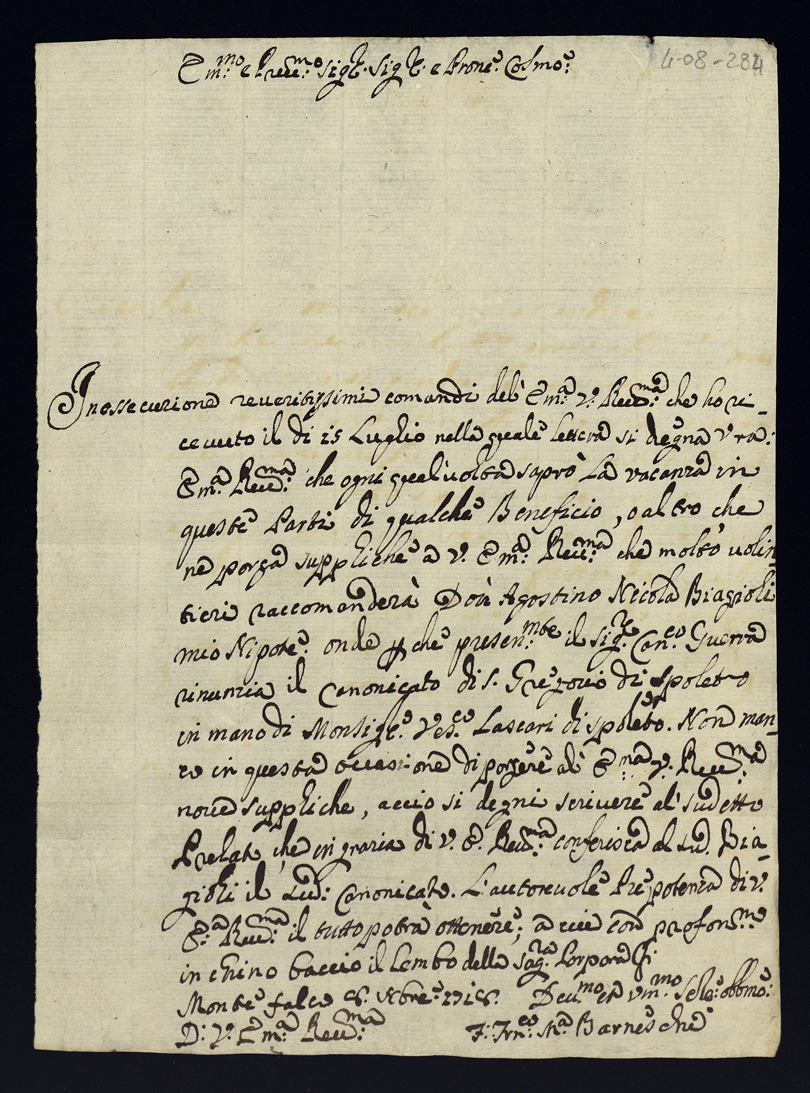 4-08-284
E.mo e Reve.mo Sigr. Sigr. e Prone. Colmo.
In essecuzione reveritissimi comandi del' E.ma V. Rev.ma che ho ri-
cevuto il di 25 Luglio nella quale lettera si degna Vra.
E.ma Rev.ma che ogni qual volta saprò La vacanza in
queste Parti di qualche Beneficio, o altro che
ne porga suppliche a V. E.ma Rev.ma che molto volin-
tieri raccomanderà Don Agostino Nicola Biagioli
mio Nipote. onde p che presen.mte il sigre. Can.co Guerra
rinunzia il Canonicato di S. Gregorio di Spoleto
in mano di Monsigre. Vesco. Lascari di Spoleto. Non man-
co in questa occasione di porgere al' E.ma V. Rev.ma
nove suppliche, accio si degni scrivere al' sudetto
Prelat che in grazia di V. E. Rev.ma conferisca al sud. Bia-
gioli il sud. Canonicato. L'autorevole Prepotenza di V.
E.a Rev.ma il tutto potrà ottenere; a cui con profon.me
in chino baccio il Lembo della Sag.ra Porpora
Monte falco 8. 1718. Dev.mo et um.mo Se obbmo.
D: V. E.ma Rev.ma F. Fran.co Ma. Barneschi